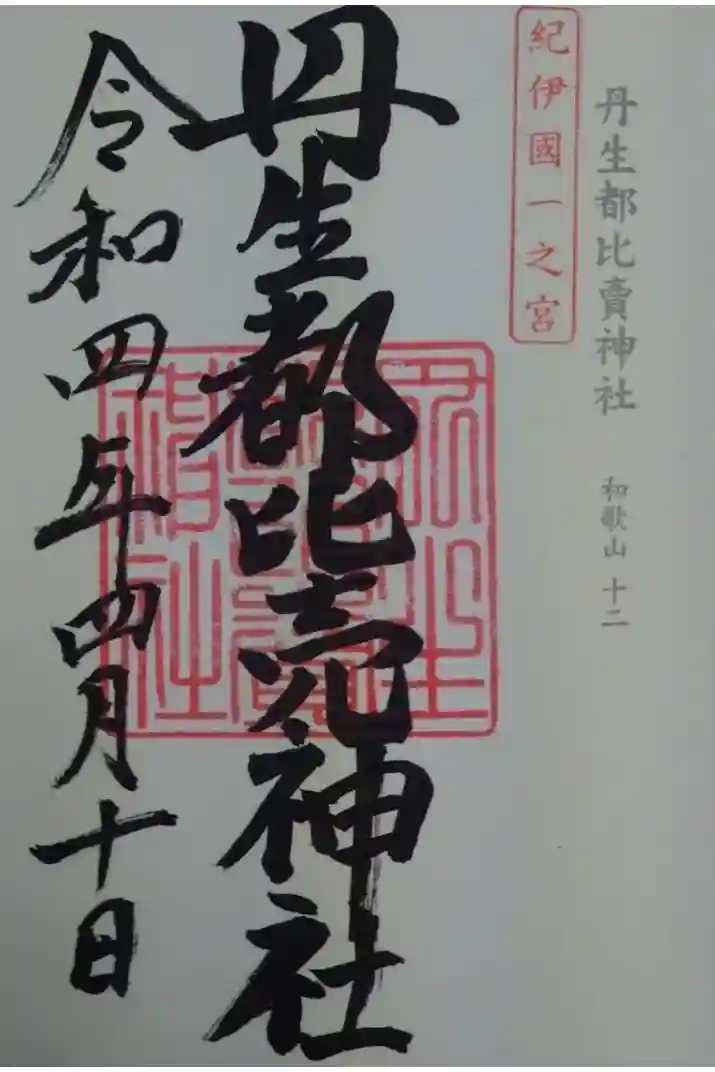 丹生都比賣神社 和歌山 十二
紀伊國一之宮
丹生都比売神社
令和四年四月十日